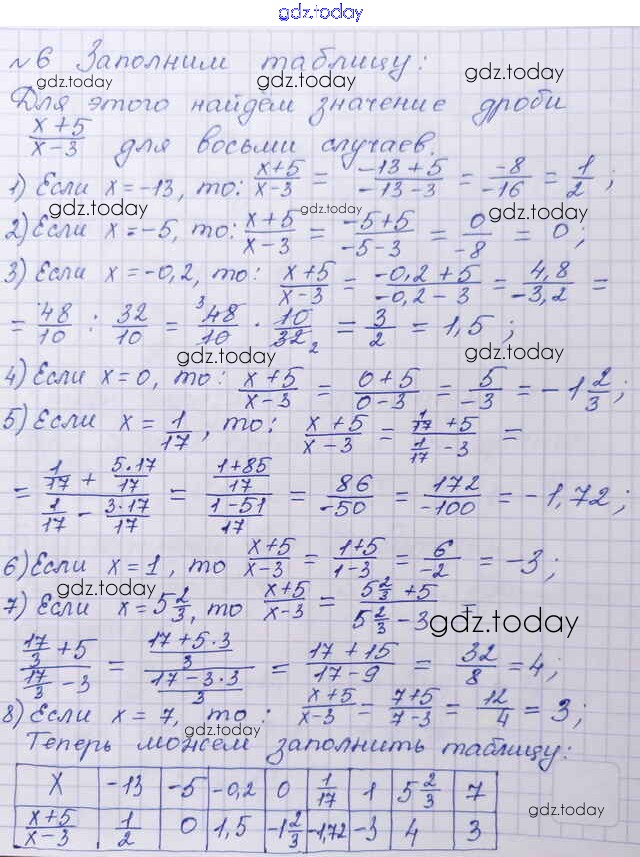 gdz.today
№6 Заполним таблицу:
gdz.today gdz.today
Для этого найдём значение дроби
(x+5)/(x-3) для восьми случаев.
gdz.today gdz.today
1) Если x = -13, то: (x+5)/(x-3) = (-13+5)/(-13-3) = (-8)/(-16) = 1/2;
gdz.today gdz.today
2) Если x = -5, то: (x+5)/(x-3) = (-5+5)/(-5-3) = 0/(-8) = 0;
3) Если x = -0,2, то: (x+5)/(x-3) = (-0,2+5)/(-0,2-3) = 4,8/(-3,2) =
= 48/10 : 32/10 = 48/10 · 10/32 = 3/2 = 1,5;
3 2
gdz.today gdz.today
4) Если x = 0, то: (x+5)/(x-3) = (0+5)/(0-3) = 5/(-3) = -1 2/3;
gdz.today
5) Если x = 1/17, то: (x+5)/(x-3) = (1/17 + 5)/(1/17 - 3) =
gdz.today
= (1/17 + 5·17/17)/(1/17 - 3·17/17) = ((1+85)/17)/((1-51)/17) = 86/(-50) = 172/(-100) = -1,72;
6) Если x = 1, то (x+5)/(x-3) = (1+5)/(1-3) = 6/(-2) = -3;
gdz.today gdz.today
7) Если x = 5 2/3, то (x+5)/(x-3) = (5 2/3 + 5)/(5 2/3 - 3) =
gdz.today
(17/3 + 5)/(17/3 - 3) = ((17+5·3)/3)/((17-3·3)/3) = (17+15)/(17-9) = 32/8 = 4;
8) Если x = 7, то: (x+5)/(x-3) = (7+5)/(7-3) = 12/4 = 3;
gdz.today
Теперь можем заполнить таблицу:
x -13 -5 -0,2 0 1/17 1 5 2/3 7
gdz.today gdz.today
(x+5)/(x-3) 1/2 0 1,5 -1 2/3 -1,72 -3 4 3